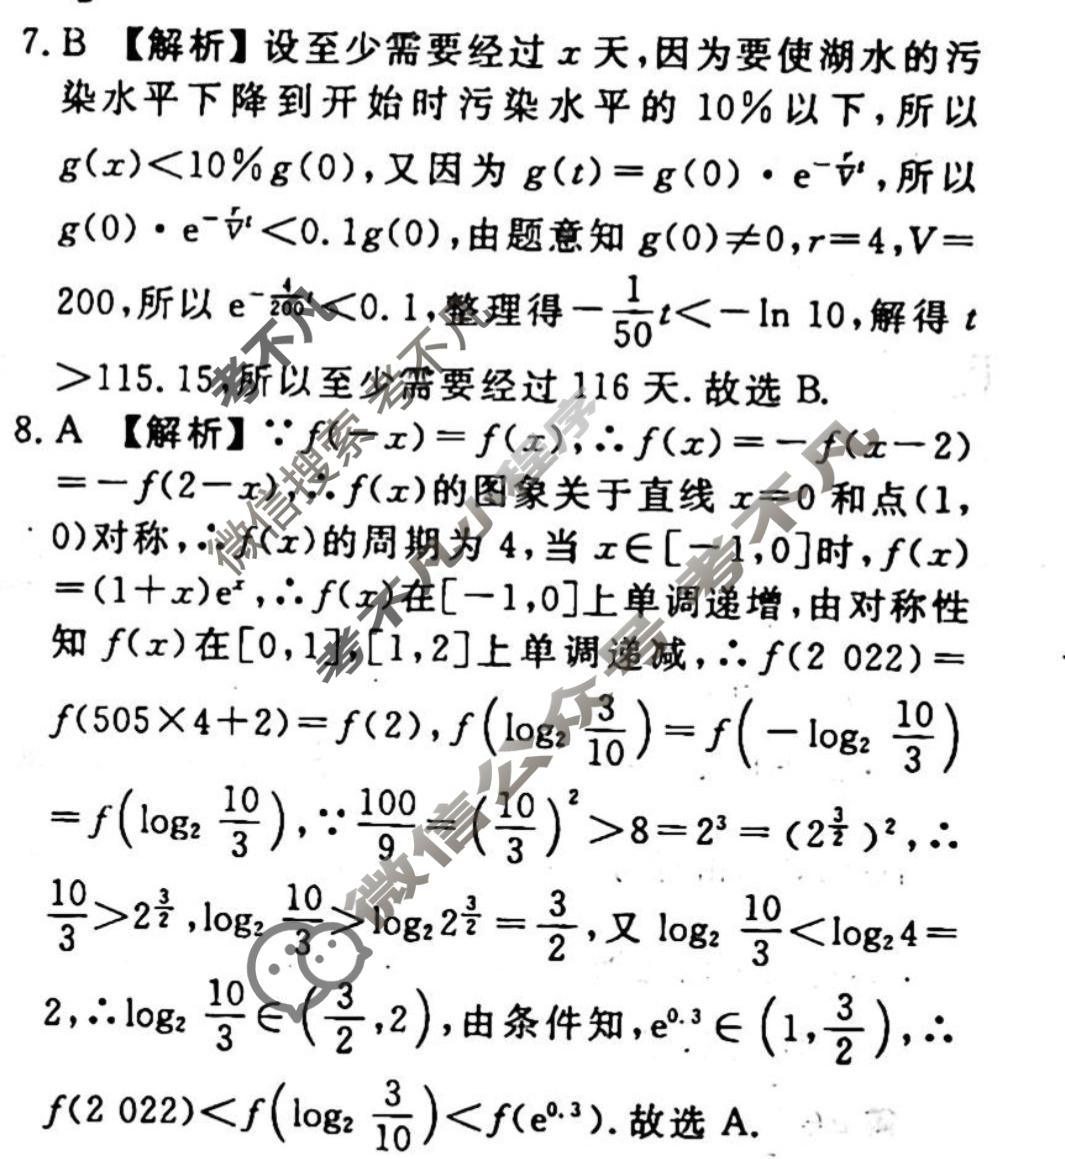 7. B 【解析】设至少需要经过 x 天,因为要使湖水的污
染水平下降到开始时污染水平的 10%以下,所以
g(x)<10%g(0),又因为 g(t)=g(0)·e^{-\frac{r}{V}t},所以
g(0)·e^{-\frac{r}{V}t}<0.1g(0),由题意知 g(0)≠0,r=4,V=
200,所以 e^{-\frac{4}{200}t}<0.1,整理得-\frac{1}{50}t<-ln 10,解得 t
>115.15,所以至少需要经过 116 天.故选 B.
8. A 【解析】∵f(-x)=f(x),∴f(x)=-f(x-2)
=-f(2-x),∴f(x)的图象关于直线 x=0 和点(1,
0)对称,∴f(x)的周期为 4,当 x∈[-1,0]时,f(x)
=(1+x)e^{x},∴f(x)在[-1,0]上单调递增,由对称性
知 f(x)在[0,1],[1,2]上单调递减,∴f(2 022)=
f(505×4+2)=f(2),f(log₂ \frac{3}{10})=f(-log₂ \frac{10}{3})
=f(log₂ \frac{10}{3}),∵\frac{100}{9}=(\frac{10}{3})^{2}>8=2^{3}=(2^{\frac{3}{2}})^{2},∴
\frac{10}{3}>2^{\frac{3}{2}},log₂ \frac{10}{3}>log₂2^{\frac{3}{2}}=\frac{3}{2},又 log₂ \frac{10}{3}<log₂4=
2,∴log₂ \frac{10}{3}∈(\frac{3}{2},2),由条件知,e^{0.3}∈(1,\frac{3}{2}),∴
f(2 022)<f(log₂ \frac{3}{10})<f(e^{0.3}).故选 A.
考不凡
微信搜索 考不凡
考不凡小程序
微信公众号 考不凡